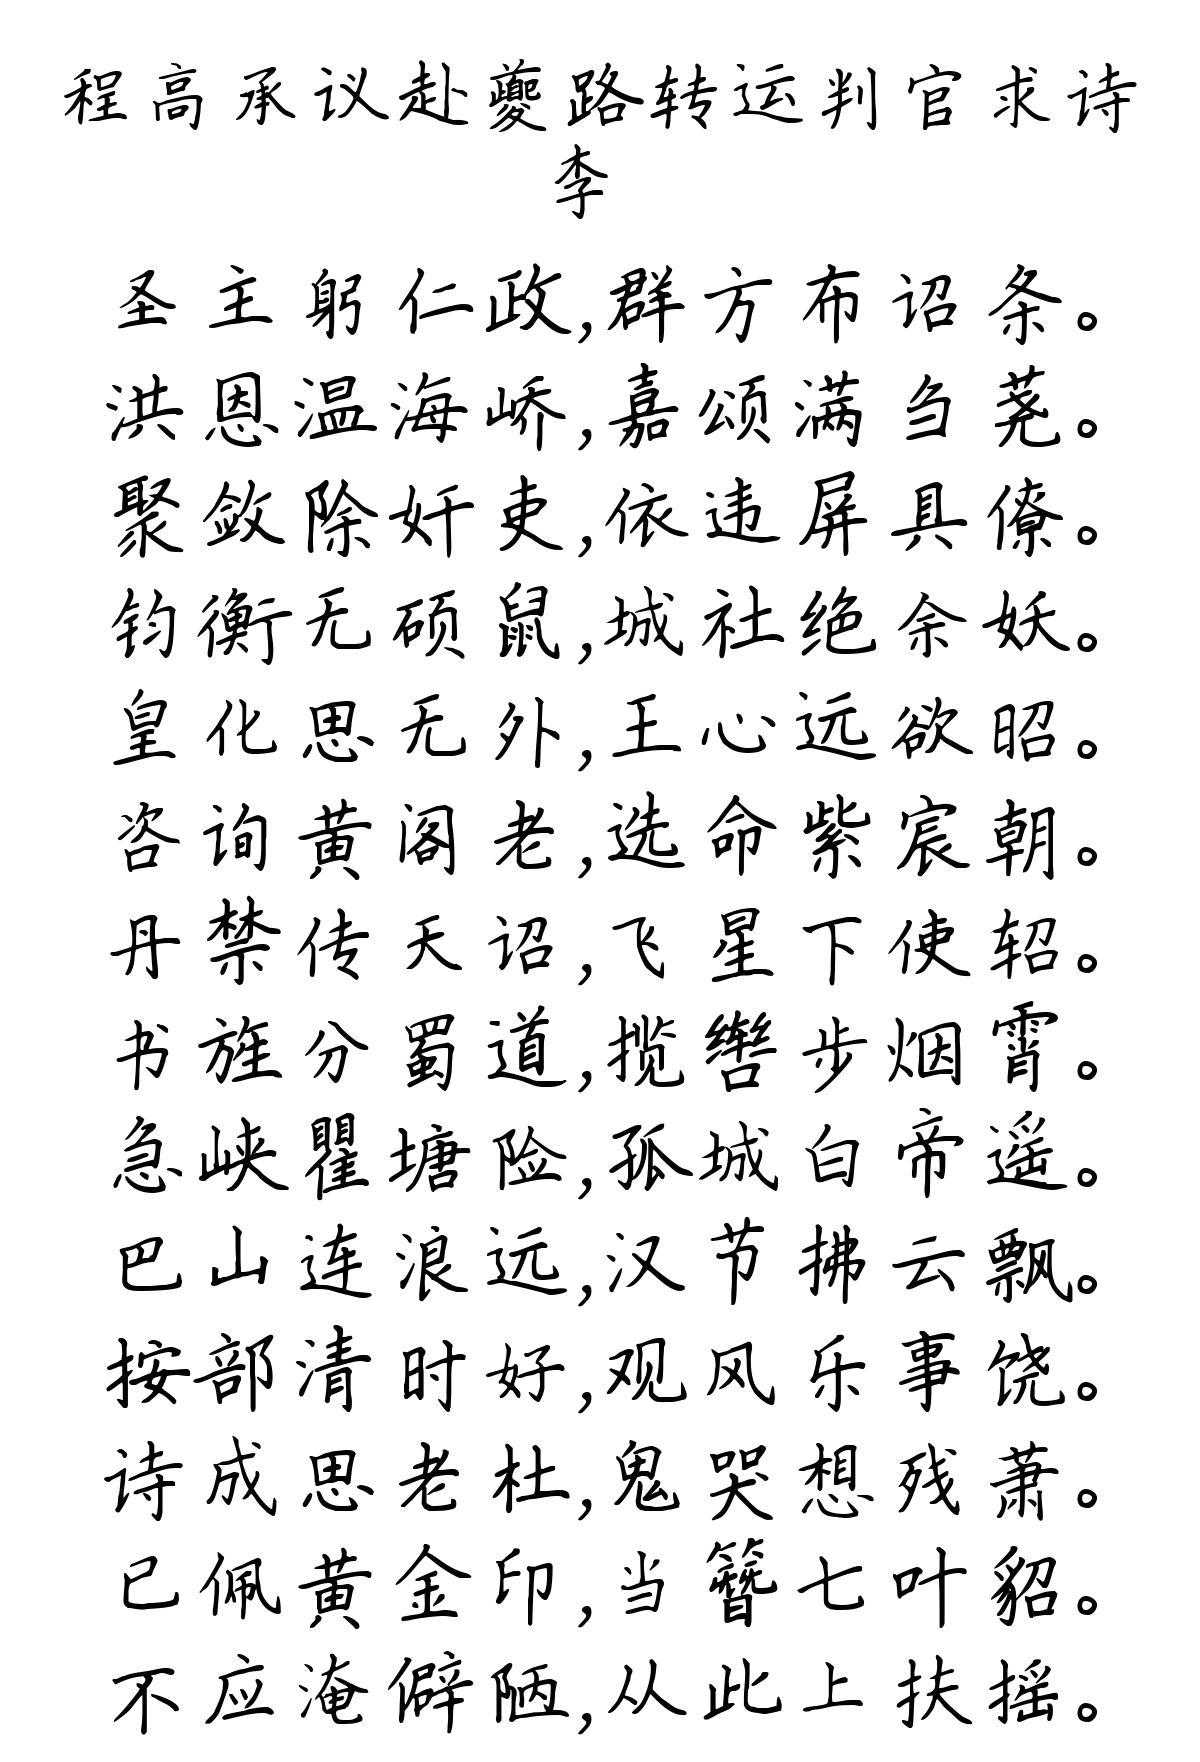 程高承议赴夔路转运判官求诗
李
圣主躬仁政,群方布诏条。
洪恩温海峤,嘉颂满刍荛。
聚敛除奸吏,依违屏具僚。
钧衡无硕鼠,城社绝余妖。
皇化思无外,王心远欲昭。
咨询黄阁老,选命紫宸朝。
丹禁传天诏,飞星下使轺。
书旌分蜀道,揽辔步烟霄。
急峡瞿塘险,孤城白帝遥。
巴山连浪远,汉节拂云飘。
按部清时好,观风乐事饶。
诗成思老杜,鬼哭想残萧。
已佩黄金印,当簪七叶貂。
不应淹僻陋,从此上扶摇。